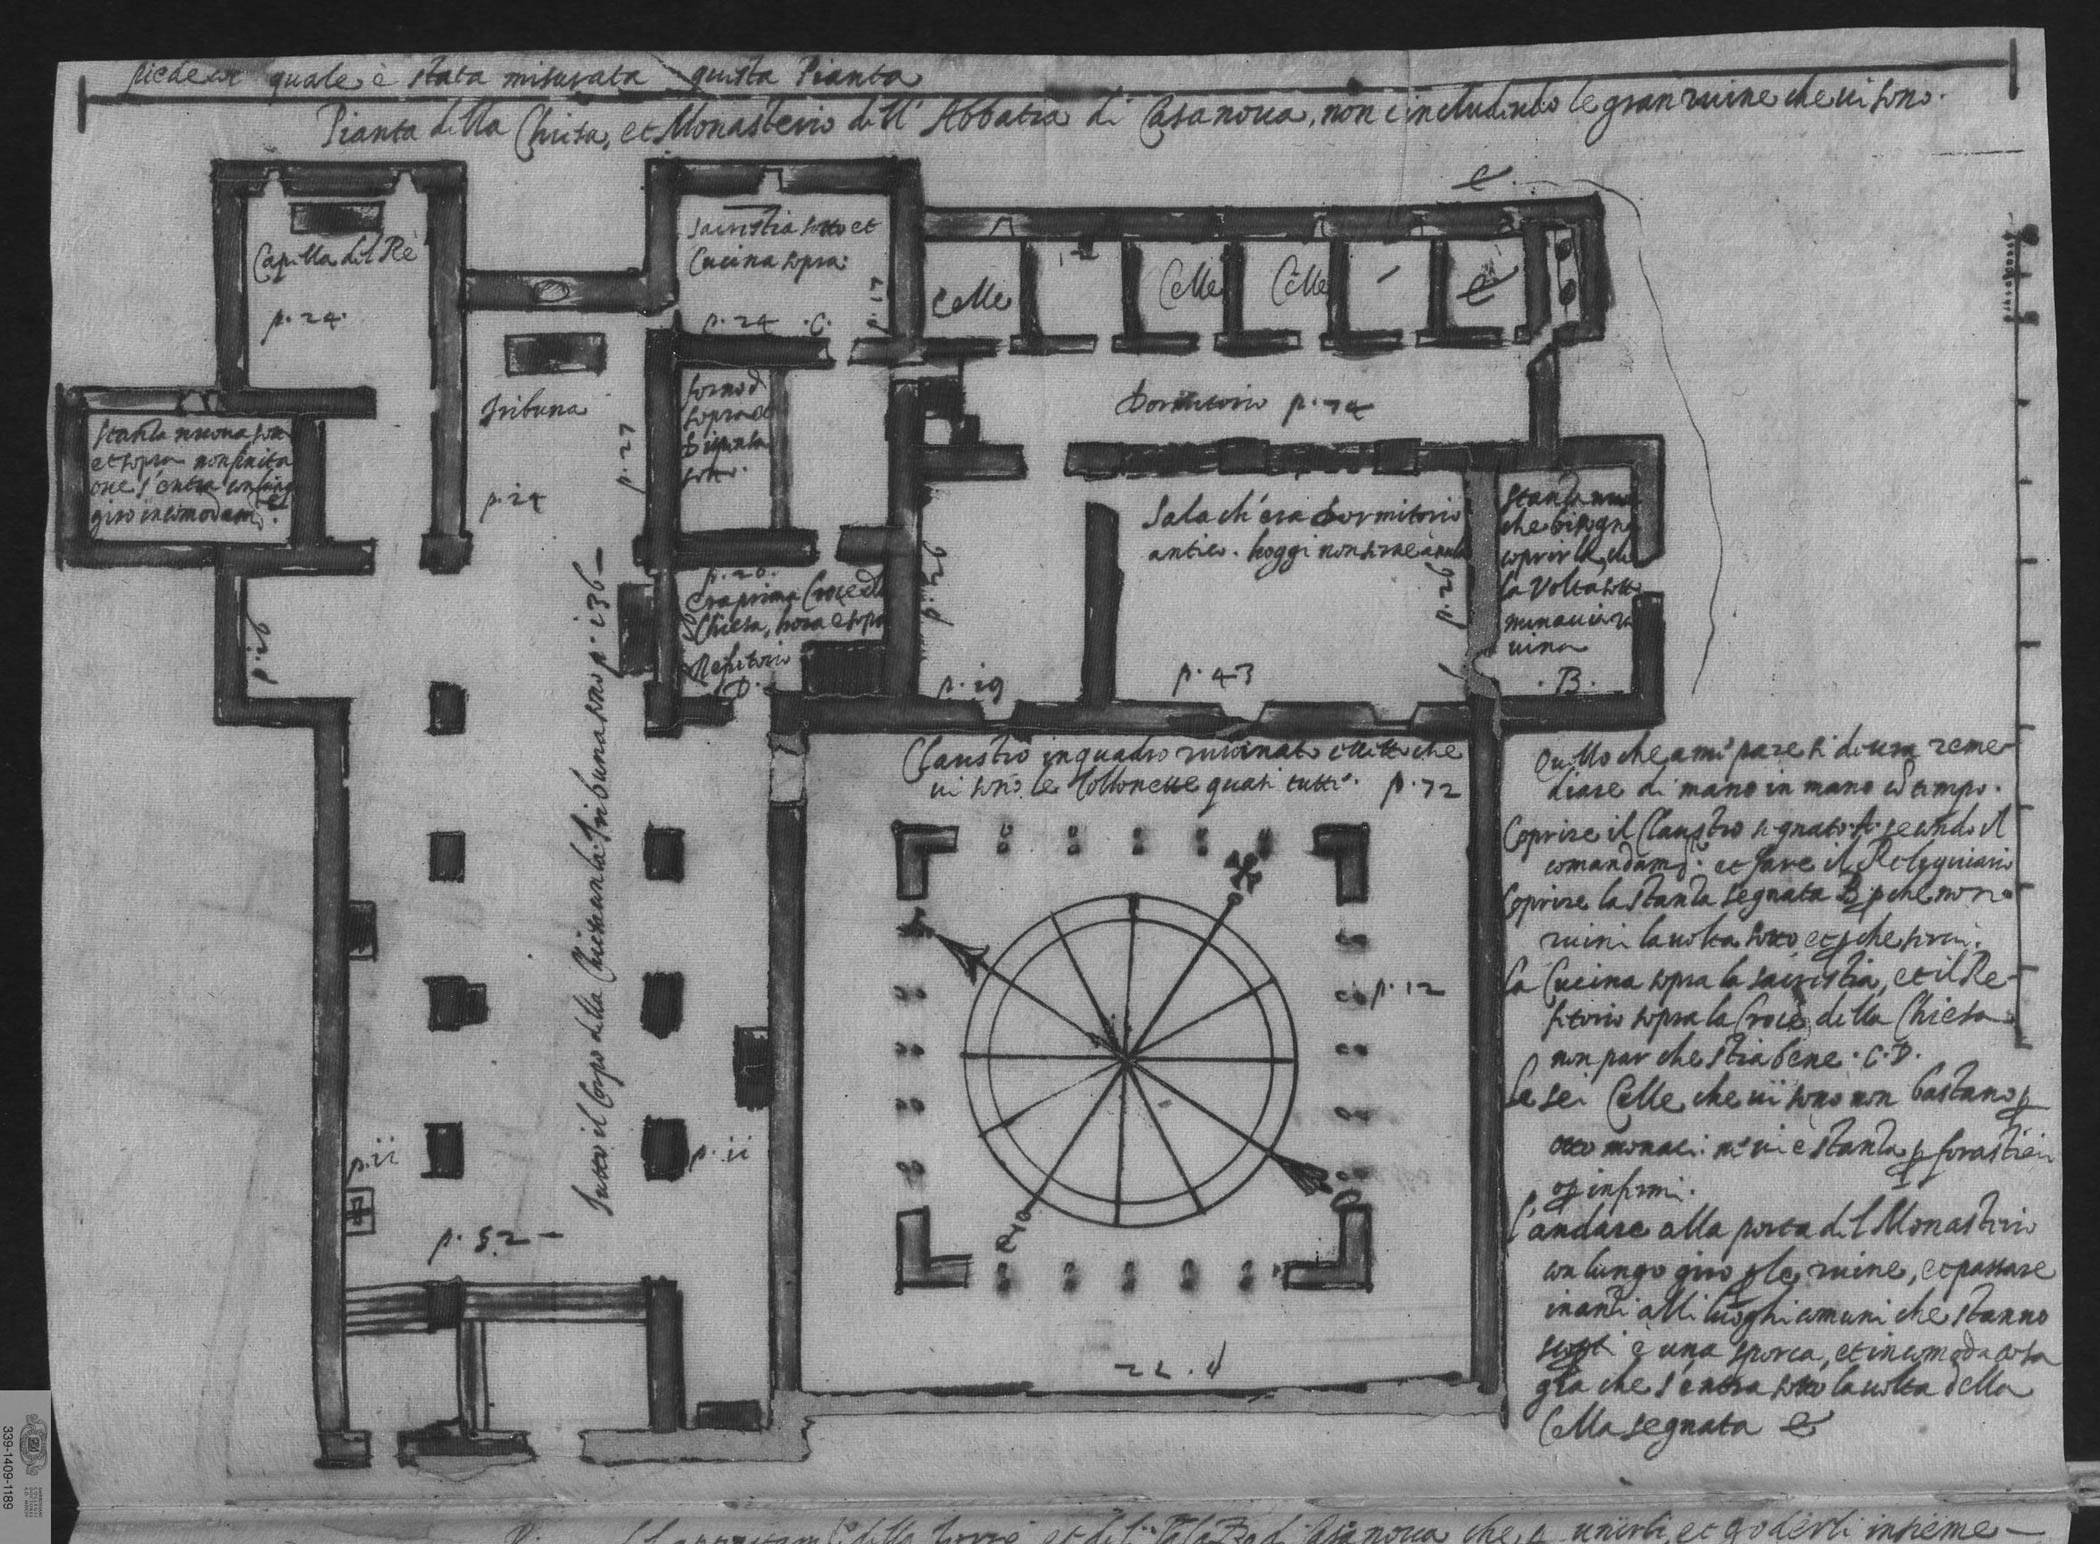 piede col quale è stata misurata questa Pianta
Pianta della Chiesa, et Monasterio dell' Abbatia di Casanova, non includendo le gran ruine che vi sono.
Capella del Re
p. 24.
Sacristia sotto et
Cucina sopra.
p. 24 .C.
p. 17
Celle
Celle
Celle
e
e
Stanza nuova sotto
et sopra non finita
ove s'entra con lungo
giro incomodam.te
Tribuna
p. 24
p. 27
forno di
sopra et
Dispensa
sotto.
Dormitorio p. 74
p. 20.
era prima Croce della
Chiesa, hora è sopra
Refitorio
D.
p. 26
p. 26
p. 19
Sala ch'era Dormitorio
antico. hoggi non serve à nulla
p. 43
p. 26
Stanza nuova
che bisogna
coprirla, che
la Volta sotto
minaccia ru
vina
.B.
Tutto il Corpo della Chiesa con la Tribuna sono p. 136
Claustro in quadro ruvinato eccetto che
vi sono le Collonette quasi tutte. p. 72
p. 12
p. 11
p. 11
p. 52
22. d
Quello che a mi pare si deva reme
diare di mano in mano col tempo.
Coprire il Claustro segnato A secondo il
comandam.to et fare il Reliquiario
Coprire la stanza segnata B. p che non
ruini la volta sotto et p che servi.
La Cucina sopra la sacristia, et il Re-
fitorio sopra la Croce della Chiesa
non par che stia bene. C. D.
Le sei Celle che vi sono non bastano p
otto monaci. ne vi è stanza p forastieri
o p infirmi.
L'andare alla porta del Monasterio
con lungo giro p le ruine, et passare
inanti alli luoghi comuni che stanno
scoperti è una sporca, et incomoda cosa
già che s'entra sotto la volta della
Cella segnata e
339-1409-1189
et del Palazzo di Casanova che p unirli, et goderli insieme